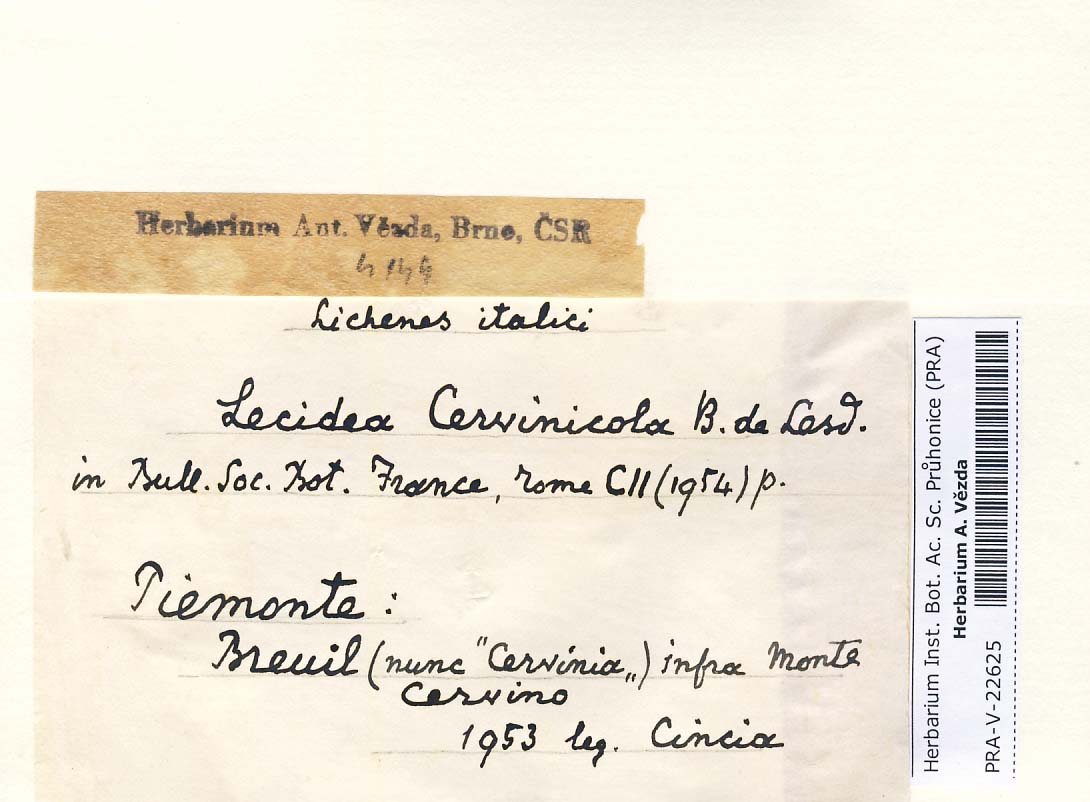 Herbarium Ant. Vězda, Brno, ČSR
Lichenes italici
Lecidea Cervinicola B. de Lesd.
in Bull. Soc. Bot. France, tome CII (1954) p.
Piemonte :
Breuil (nunc "Cervinia„) infra Monte
Cervino
1953 leg. Cincia
Herbarium Inst. Bot. Ac. Sc. Průhonice (PRA)
Herbarium A. Vězda
PRA-V-22625